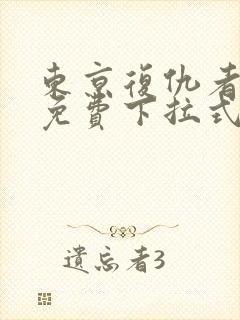 東京復仇者
免費下拉式
遺忘者3